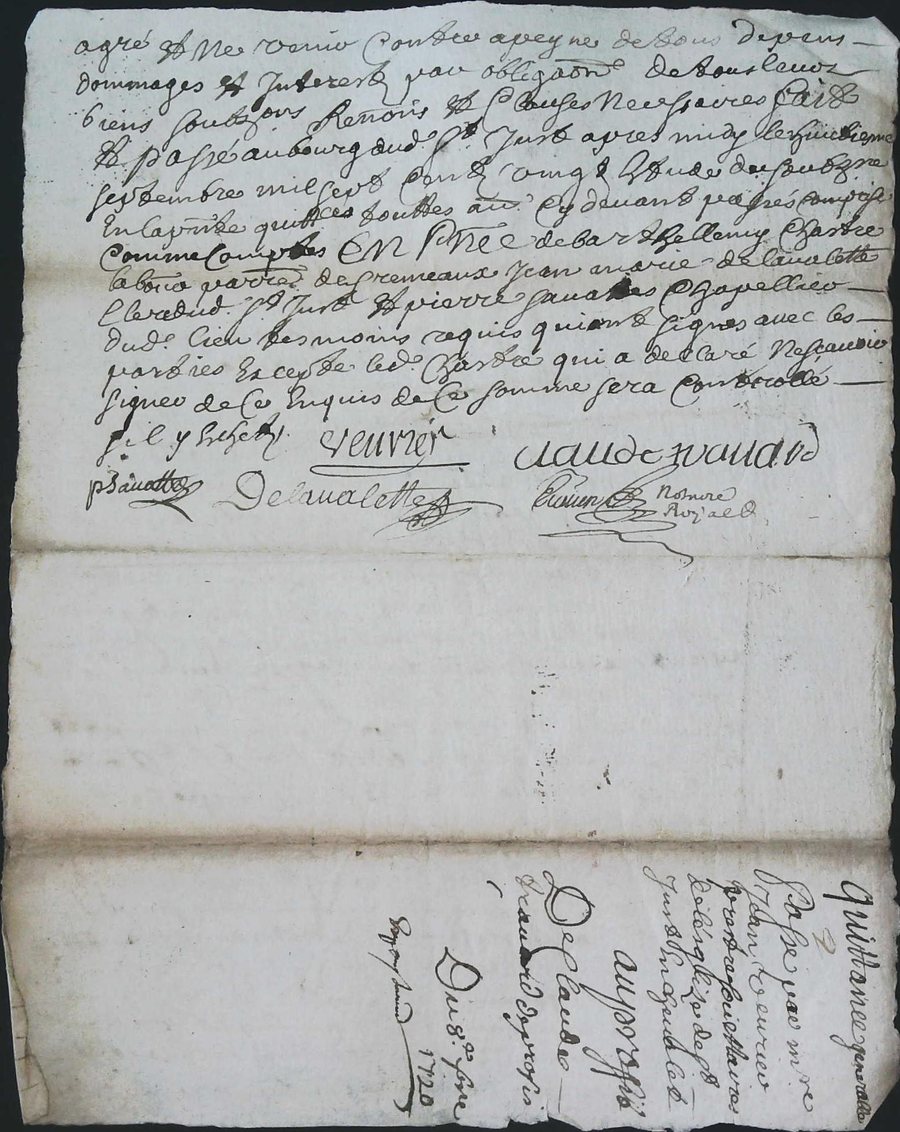 agré et Ne venir Contre apeyne detous depens
dommages et Interest par obligaon detous leurs
biens soubzons Renons et Clauses Necessaires fait
et passé aubourg dud. st. Just apres midy le huitieme
septembre mil sept Cent vingt
En la pnte quittces touttes au. Cy devant passés comprise
Comme Comptes EN Pnce debarthellemy Chartre
labour parroe de Cremeaux Jean marie delavalette
Clercdud. st Just et pierre sauattes Chapellier
dud. lieu tesmoins requis quiont signes avec les
parties Excepte led. Chartre qui a declaré Nesçavoir
signer de Ce Enquis de Ce somme sera Controllé
sil y Eschet
veuvrier
claude
pSavatte
Delavalette
Notaire
Royal
quittance generalle
Passe par mre
Jean veuvrier
pretre societtaire
delenglize de st
Just En chevalet
auproffit
De Claude
Du 8e 7bre
1720